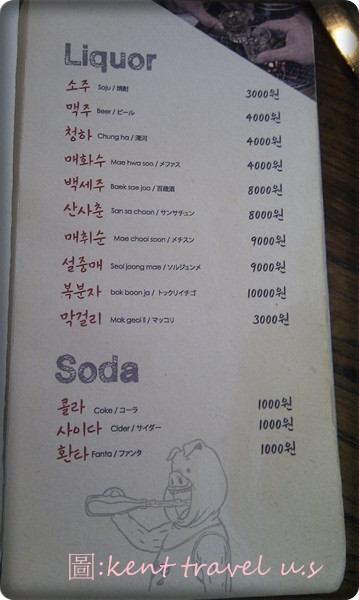 Liquor
소주 Soju / 焼酎 3000원
맥주 Beer / ビール 4000원
청하 Chung ha / 清河 4000원
매화수 Mae hwa soo / メファス 4000원
백세주 Baek sae joo / 百歳酒 8000원
산사춘 San sa choon / サンサチュン 8000원
매취순 Mae chooi soon / メチスン 9000원
설중매 Seol joong mae / ソルジュンメ 9000원
복분자 bok boon ja / トックリイチゴ 10000원
막걸리 Mak geol li / マッコリ 3000원
Soda
콜라 Coke / コーラ 1000원
사이다 Cider / サイダー 1000원
환타 Fanta / ファンタ 1000원
圖:kent travel u.s